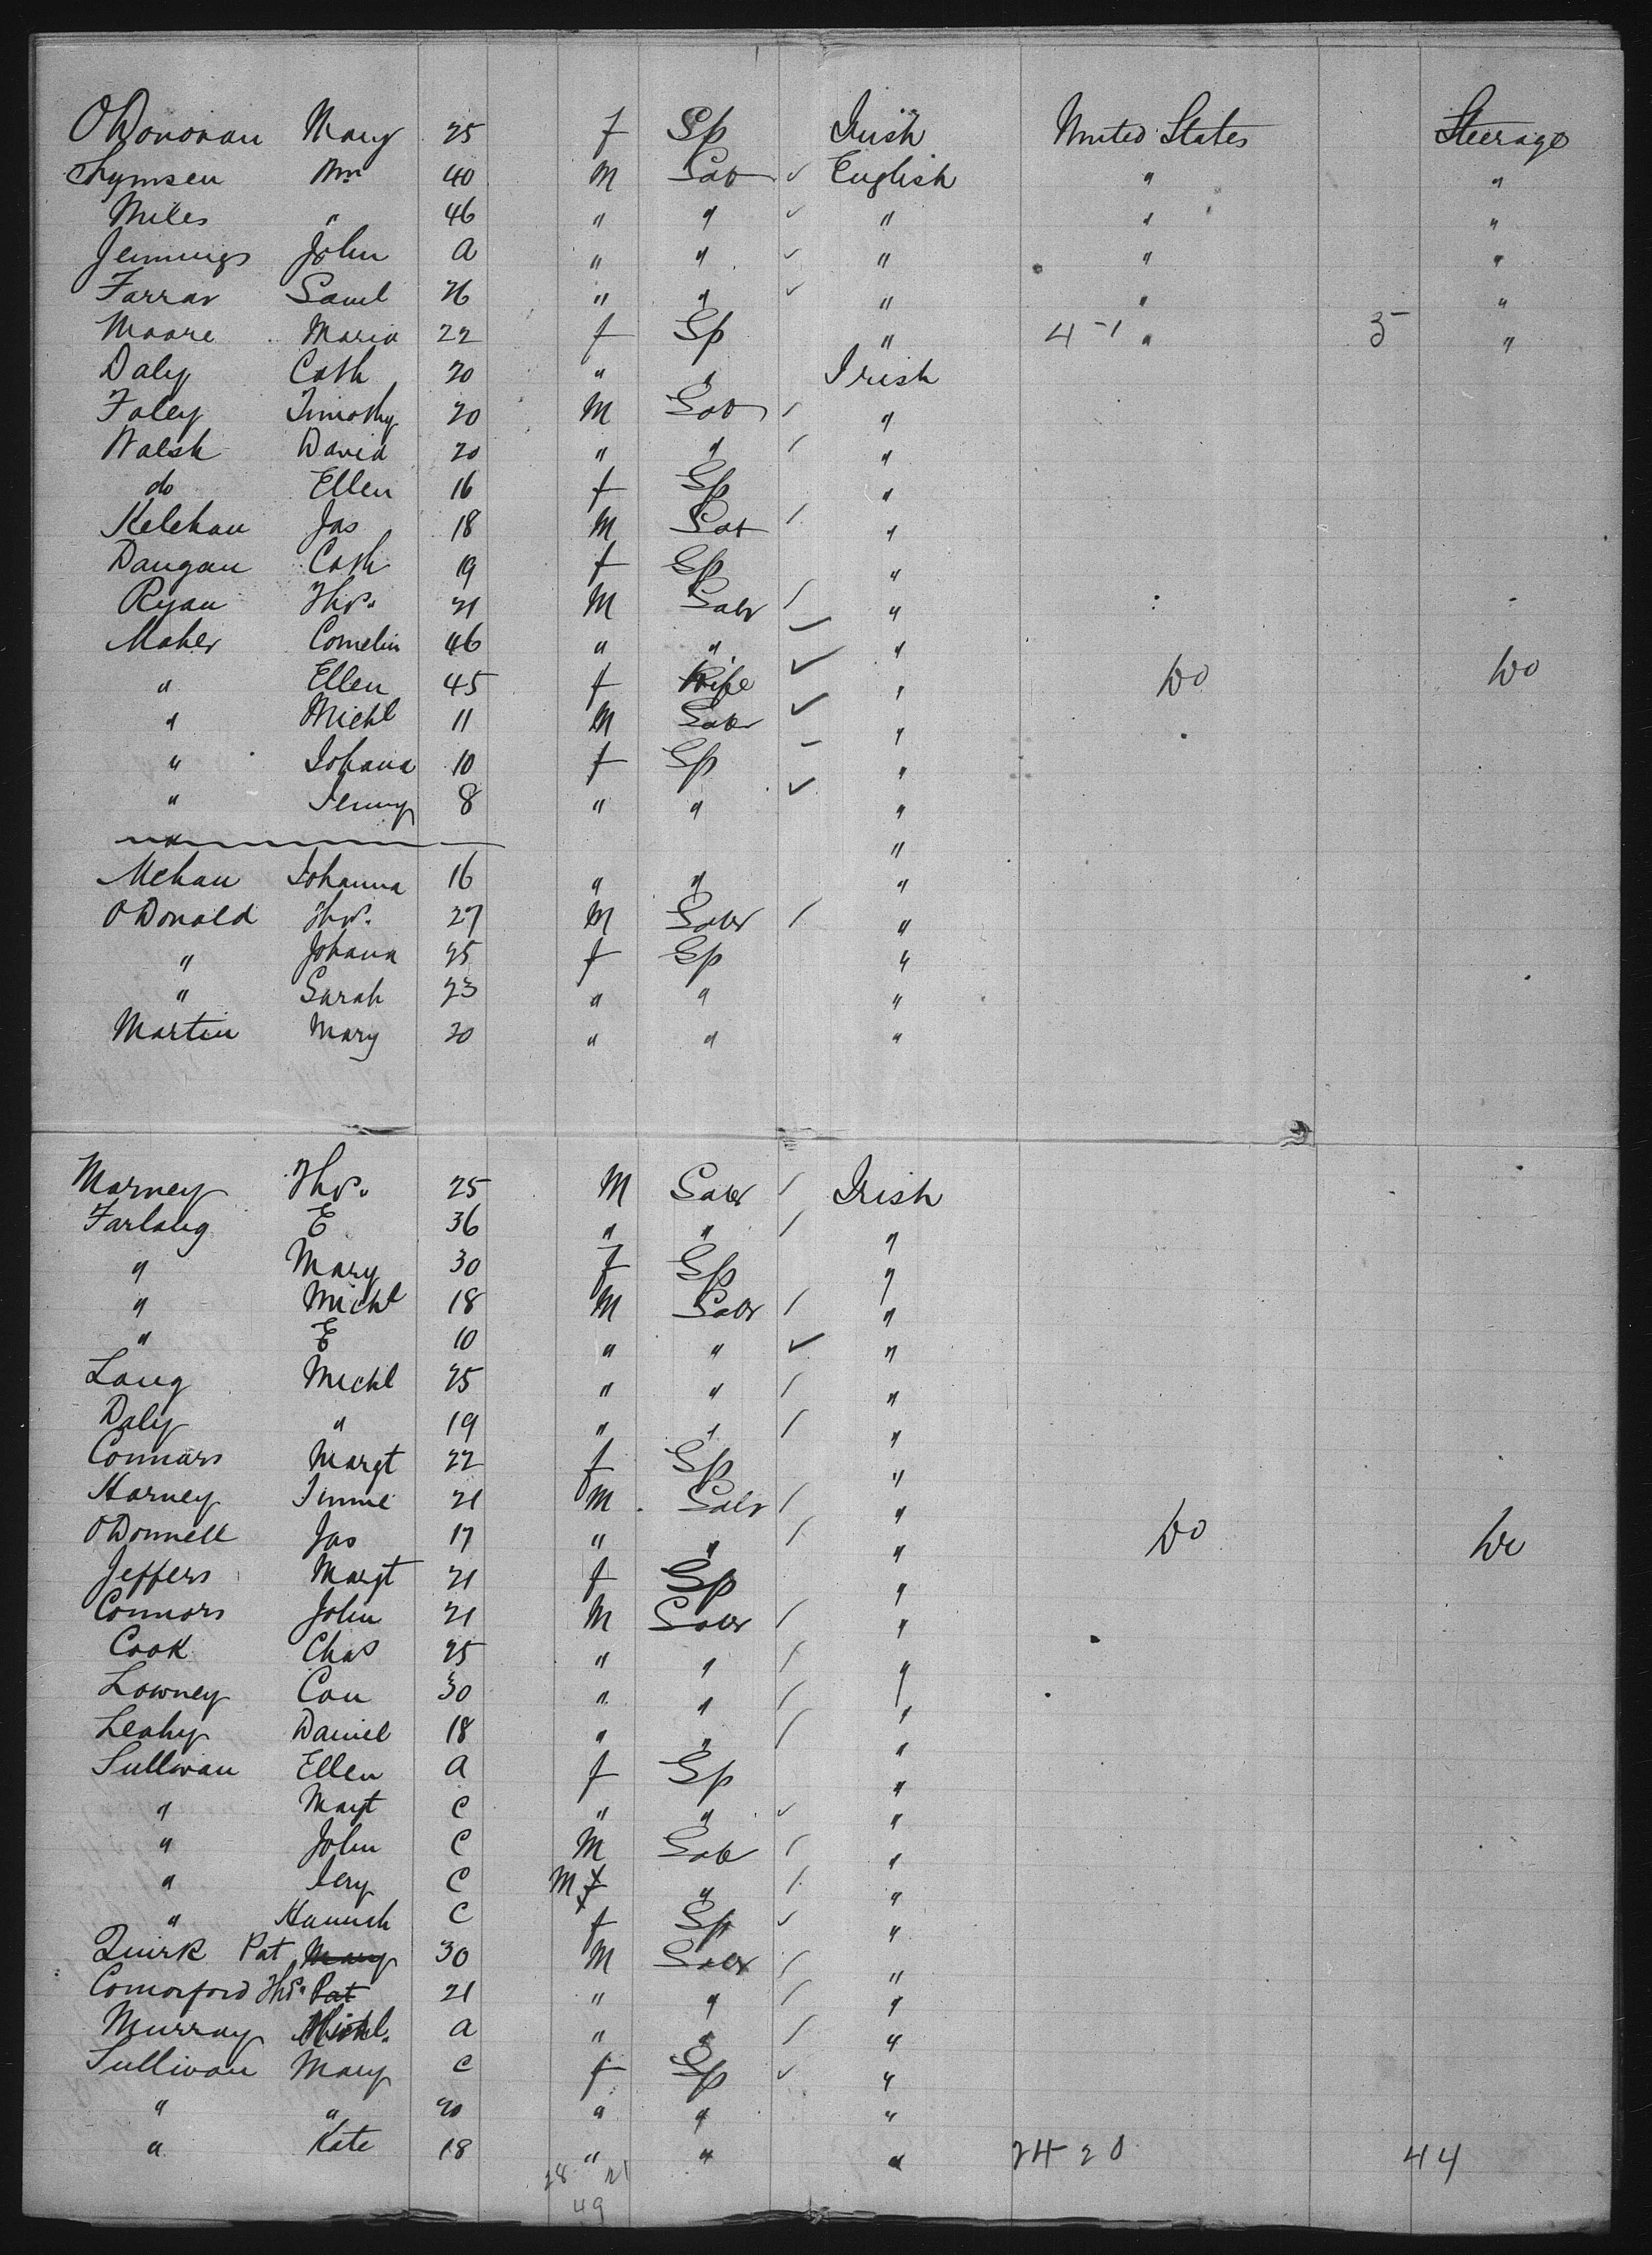 O'Donovan Mary 25 f Sp Irish United States Steerage
Wm 40 M Lab ✓ English " "
Miles " 46 " " ✓ " " "
Jennings John A " " ✓ " " "
Farrar Saml 26 " " ✓ " " "
Moore Maria 22 f Sp " 4-1 " 5 "
Daly Cath 20 " " Irish
Foley Timothy 20 M Lab / "
Walsh David 20 " " / "
do Ellen 16 f Sp "
Kelehan Jas 18 M Lab / "
Dangan Cath 19 f Sp "
Ryan Thos. 21 M Labr / "
Maher Cornelius 46 " " ✓ "
" Ellen 45 f Wife ✓ " Do Do
" Michl 11 M Labr ✓ "
" Johana 10 f Sp ✓ "
" Jenny 8 " " ✓ "
"
Mehan Johanna 16 " " "
O'Donald Thos. 27 M Labr / "
" Johana 25 f Sp "
" Sarah 23 " " "
Martin Mary 20 " " "
Marney Thos. 25 M Labr / Irish
Farlang E 36 " " / "
" Mary 30 f Sp "
" Michl 18 M Labr / "
" E 10 " " ✓ "
Lang Michl 25 " " / "
Daly " 19 " " / "
Connars Margt 22 f Sp "
Harney 21 M Labr / "
O'Donnell Jas 17 " " / " Do Do
Jeffers Margt 21 f Sp "
Connors John 21 M Labr / "
Cook Chas 25 " " / "
Lowney Con 30 " " / "
Leahy Daniel 18 " " / "
Sullivan Ellen A f Sp "
" Margt C " " ✓ "
" John C M Lab / "
" Jery C M f " / "
" Hannah C f Sp ✓ "
Quirk Pat Mary 30 M Labr / "
Comorford Thos. Pat 21 " " / "
Murray Michl. A " " / "
Sullivan Mary C f Sp ✓ "
" " 20 " " "
" Kate 18 " " " 24 20 44
28 21
49